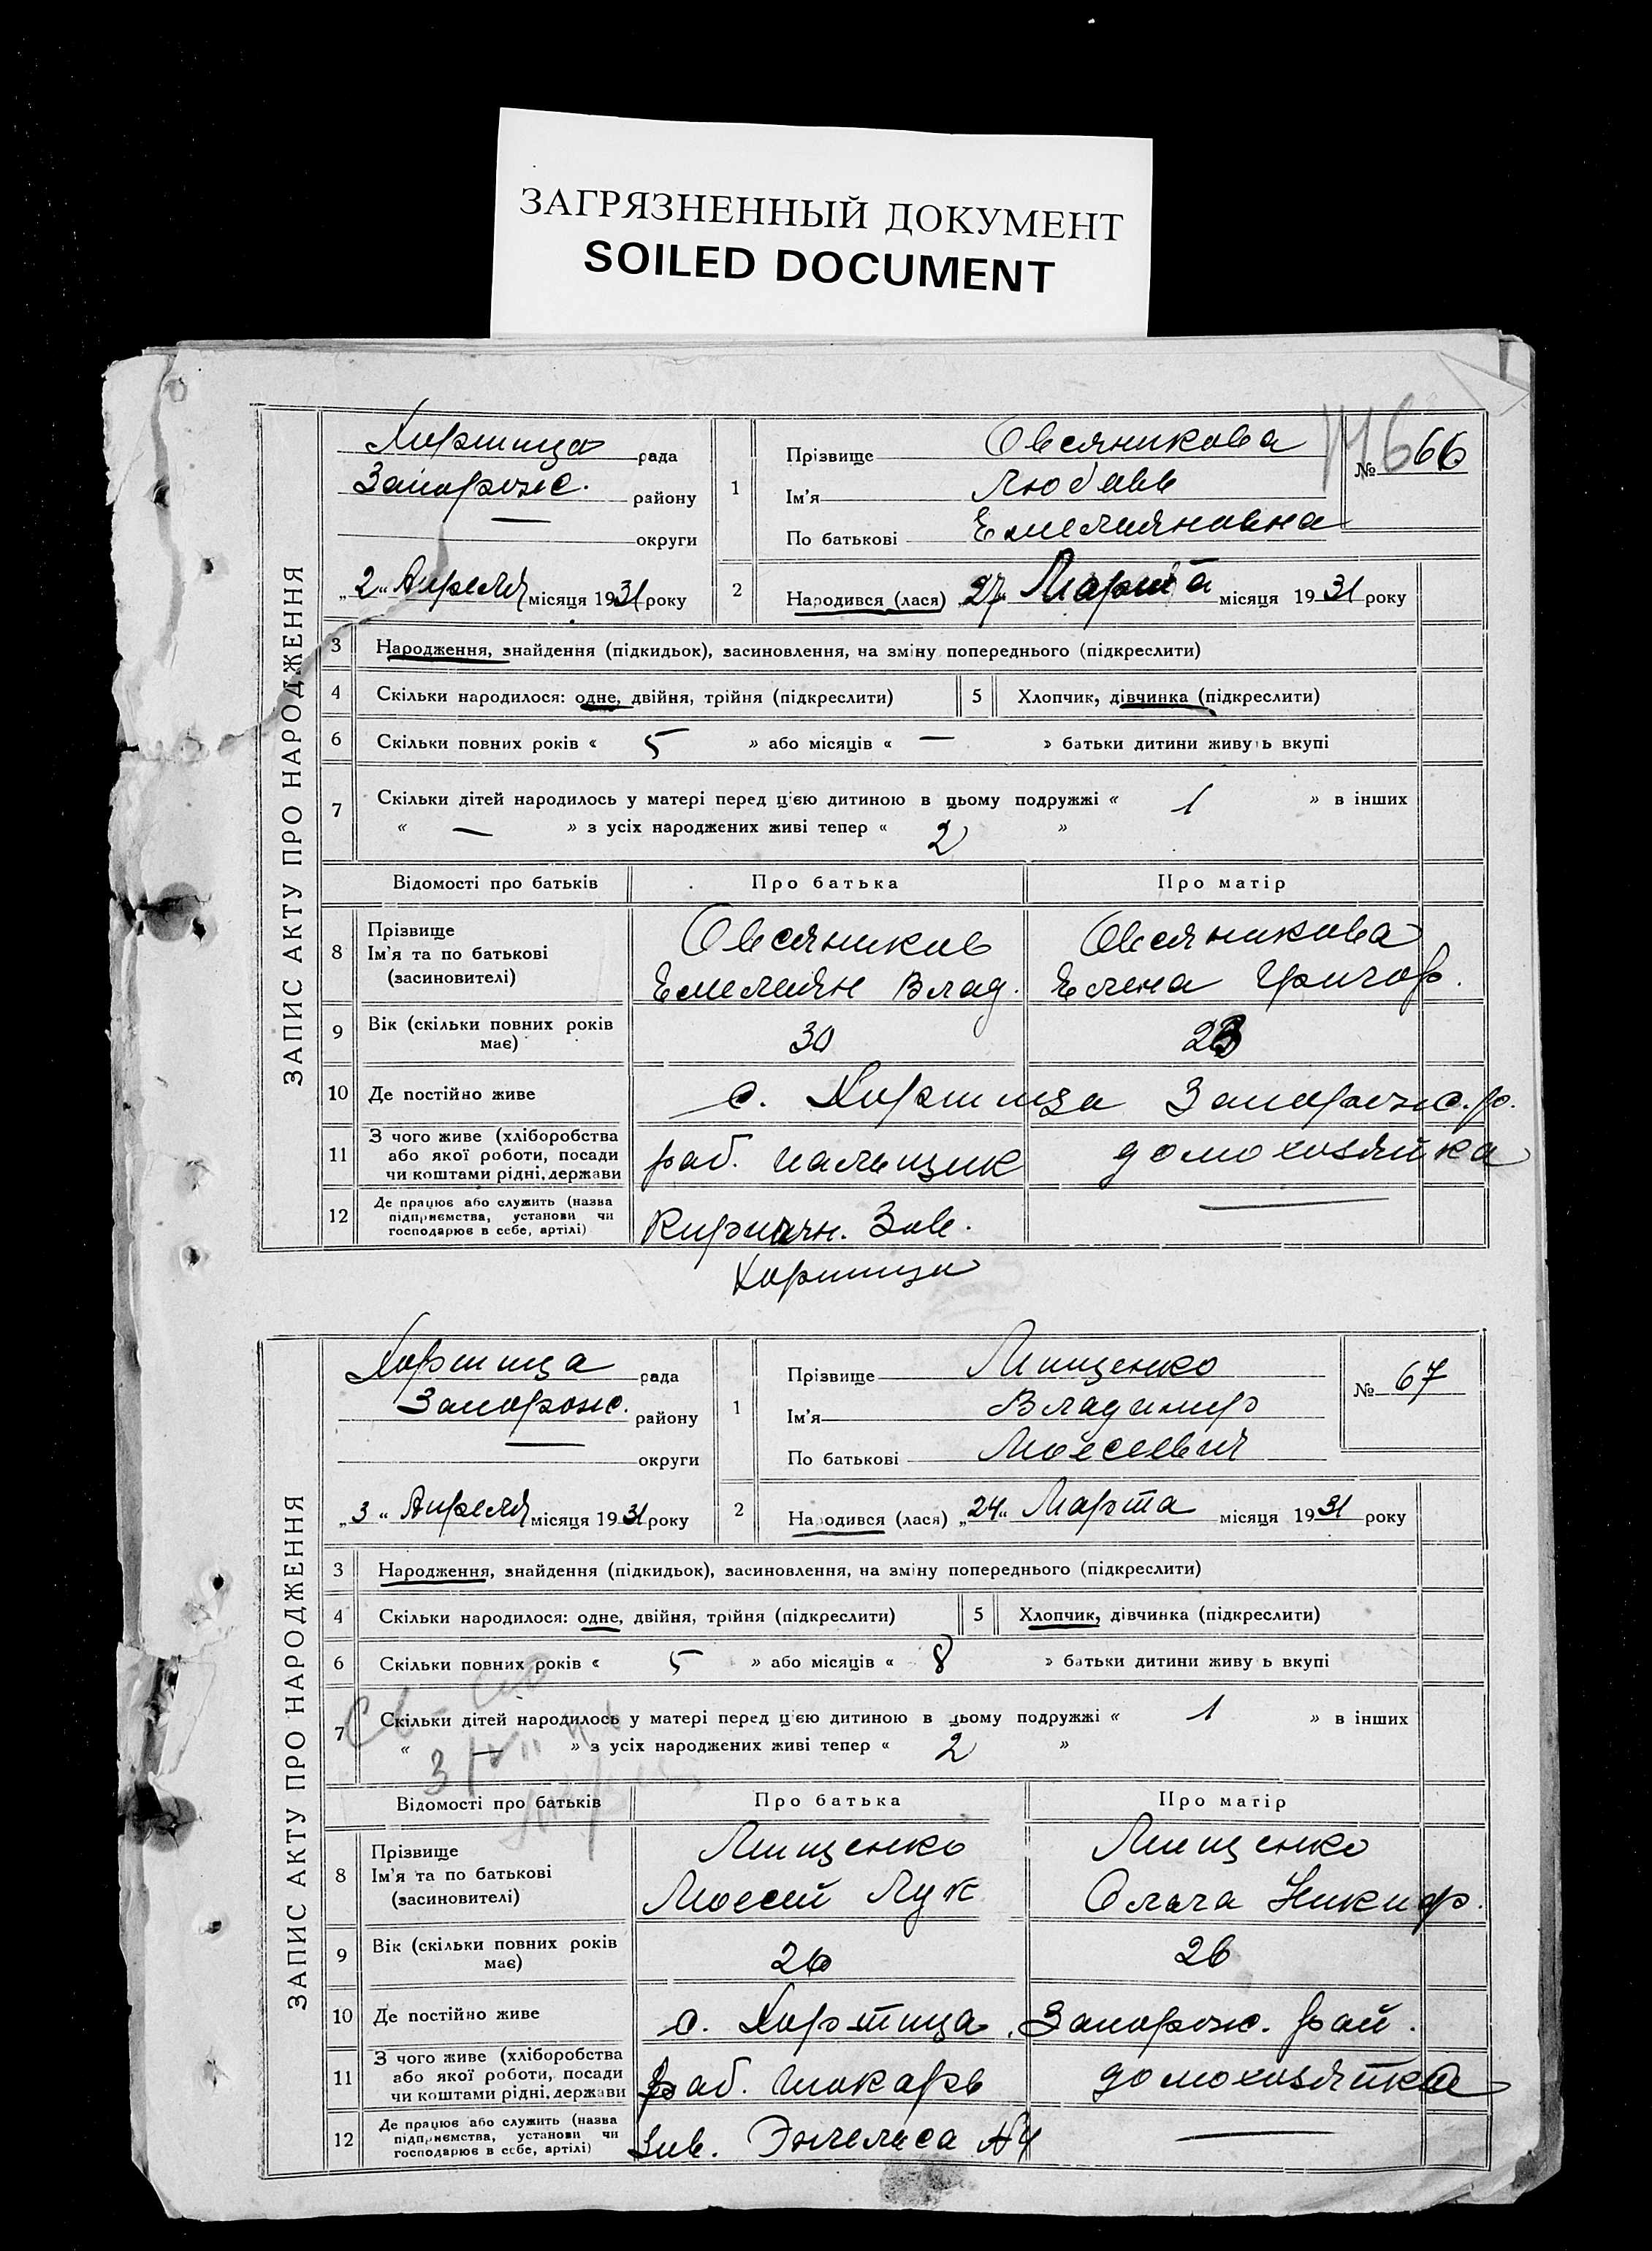 ЗАГРЯЗНЕННЫЙ ДОКУМЕНТ
SOILED DOCUMENT
ЗАПИС АКТУ ПРО НАРОДЖЕННЯ
Хортица рада
Запорож. району
— округи
„2“ Апреля місяця 1931 року
1
Прізвище Овсяникова
Ім'я Любовь
По батькові Емельяновна
№ 66
2
Народився (лася) „27“ Марта місяця 1931 року
3 Народження, знайдення (підкидьок), засиновлення, на зміну попереднього (підкреслити)
4 Скільки народилося: одне, двійня, трійня (підкреслити) 5 Хлопчик, дівчинка (підкреслити)
6 Скільки повних років « 5 » або місяців « — » батьки дитини живуть вкупі
7 Скільки дітей народилось у матері перед цією дитиною в цьому подружжі « 1 » в інших
« — » з усіх народжених живі тепер « 2 »
Відомості про батьків Про батька Про матір
8 Прізвище Ім'я та по батькові (засиновителі)
Овсяников Овсяникова
Емельян Влад. Елена Григор.
9 Вік (скільки повних років має) 30 23
10 Де постійно живе с. Хортица Запорож. р.
11 З чого живе (хліборобства або якої роботи, посади чи коштами рідні, держави
раб. домохозяйка
12 Де працює або служить (назва підприємства, установи чи господарює в себе, артілі)
Кирпичн. Зав. —
Хортица
ЗАПИС АКТУ ПРО НАРОДЖЕННЯ
Хортица рада
Запорож. району
— округи
„3“ Апреля місяця 1931 року
1
Прізвище Мищенко
Ім'я Владимир
По батькові Моисеевич
№ 67
2
Народився (лася) „24“ Марта місяця 1931 року
3 Народження, знайдення (підкидьок), засиновлення, на зміну попереднього (підкреслити)
4 Скільки народилося: одне, двійня, трійня (підкреслити) 5 Хлопчик, дівчинка (підкреслити)
6 Скільки повних років « 5 » або місяців « 8 » батьки дитини живуть вкупі
7 Скільки дітей народилось у матері перед цією дитиною в цьому подружжі « 1 » в інших
« — » з усіх народжених живі тепер « 2 »
Відомості про батьків Про батька Про матір
8 Прізвище Ім'я та по батькові (засиновителі)
Мищенко Мищенко
Моисей Лук. Ольга Никиф.
9 Вік (скільки повних років має) 26 26
10 Де постійно живе с. Хортица Запорож. рай.
11 З чого живе (хліборобства або якої роботи, посади чи коштами рідні, держави
раб. токарь домохозяйка
12 Де працює або служить (назва підприємства, установи чи господарює в себе, артілі)
Зав. Энгельса №4 —